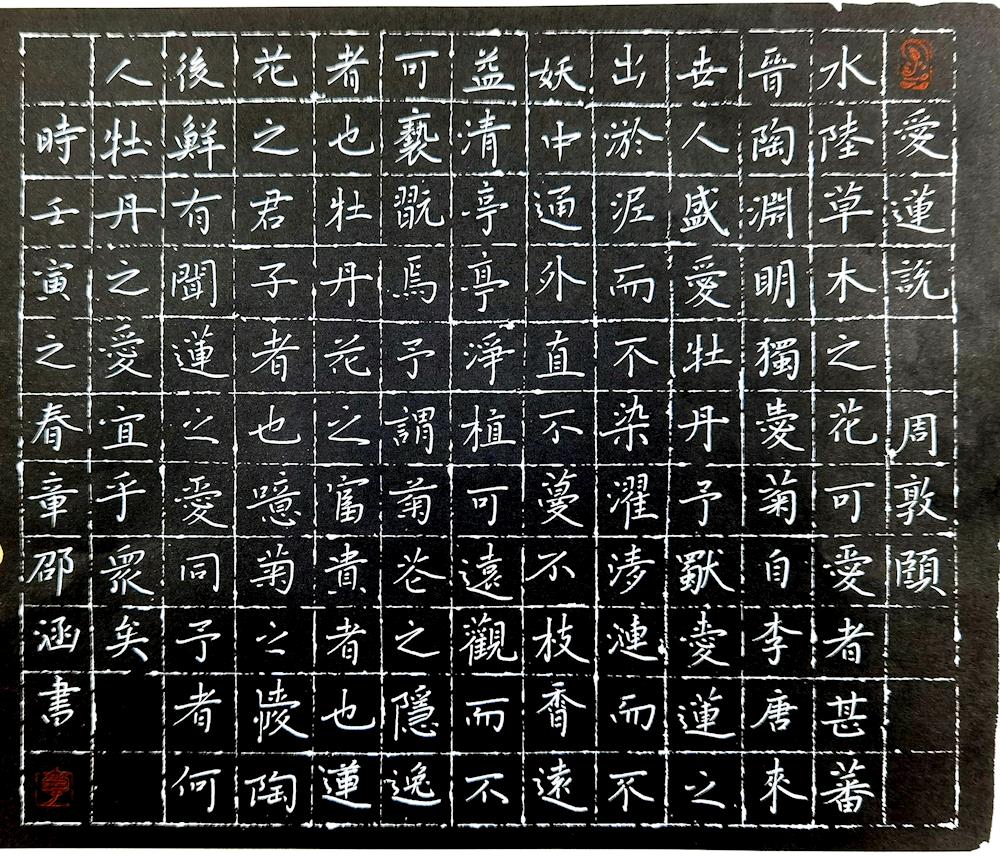 愛蓮說 周敦頤
水陸草木之花可愛者甚蕃
晉陶淵明獨愛菊自李唐來
世人盛愛牡丹予獸愛蓮之
出淤泥而不染濯渏漣而不
妖中通外直不蔓不枝香遠
益清亭亭淨植可遠觀而不
可褻翫焉予謂菊花之隱逸
者也牡丹花之富貴者也蓮
花之君子者也噫菊之愛陶
後鮮有聞蓮之愛同予者何
人牡丹之愛宜乎眾矣
時壬寅之春章邵涵書